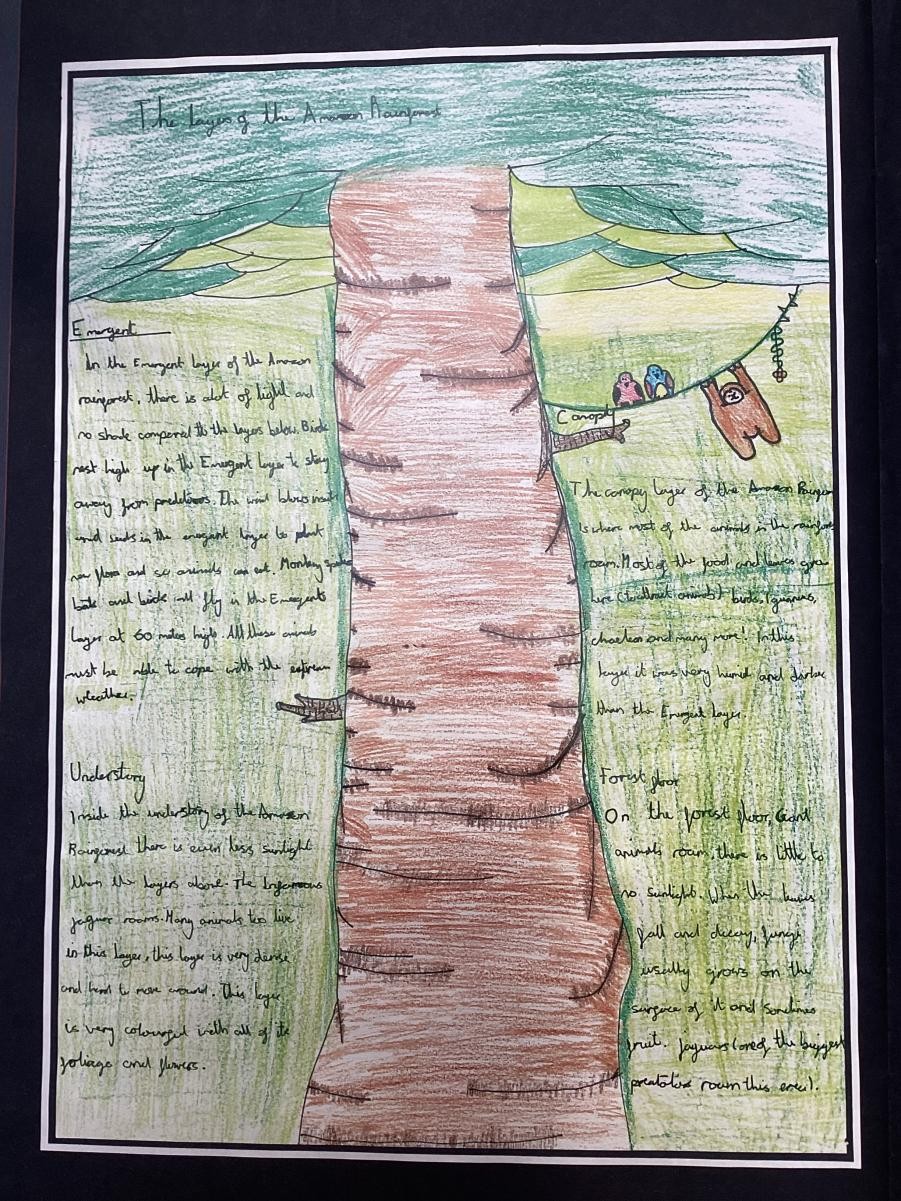 The layers of the Amazon Rainforest
Emergent
In the Emergent layer of the Amazon
rainforest, there is alot of light and
no shade compared to the layers below. Birds
nest high up in the Emergent layer to stay
away from predators. The wind blows
and seeds in the emergent layer to plant
new flora and so animals can eat. Monkey
bats and birds will fly in the Emergents
layer at 60 metres high. All these animals
must be able to cope with the extream
weather.
Understory
Inside the understory of the Amazon
Rainforest there is even less sunlight
than the layers above. The Infamous
jaguar roams. Many animals too live
in this layer, this layer is very dense
and hard to move around. This layer
is very colourful with all of its
foliage and flowers.
Canopy
The canopy layer of the Amazon Rainforest
is where most of the animals in the rainforest
roam. Most of the food and leaves grow
here (to attract animals) birds, iguanas,
and many more! In this
layer it was very humid and darker
than the Emergent layer.
Forest floor
On the forest floor, Giant
animals roam, there is little to
no sunlight. When the leaves
fall and decay, fungi
usally grows on the
surface of it and sometimes
fruit. Jaguars (one of the biggest
preatotors roam this area).